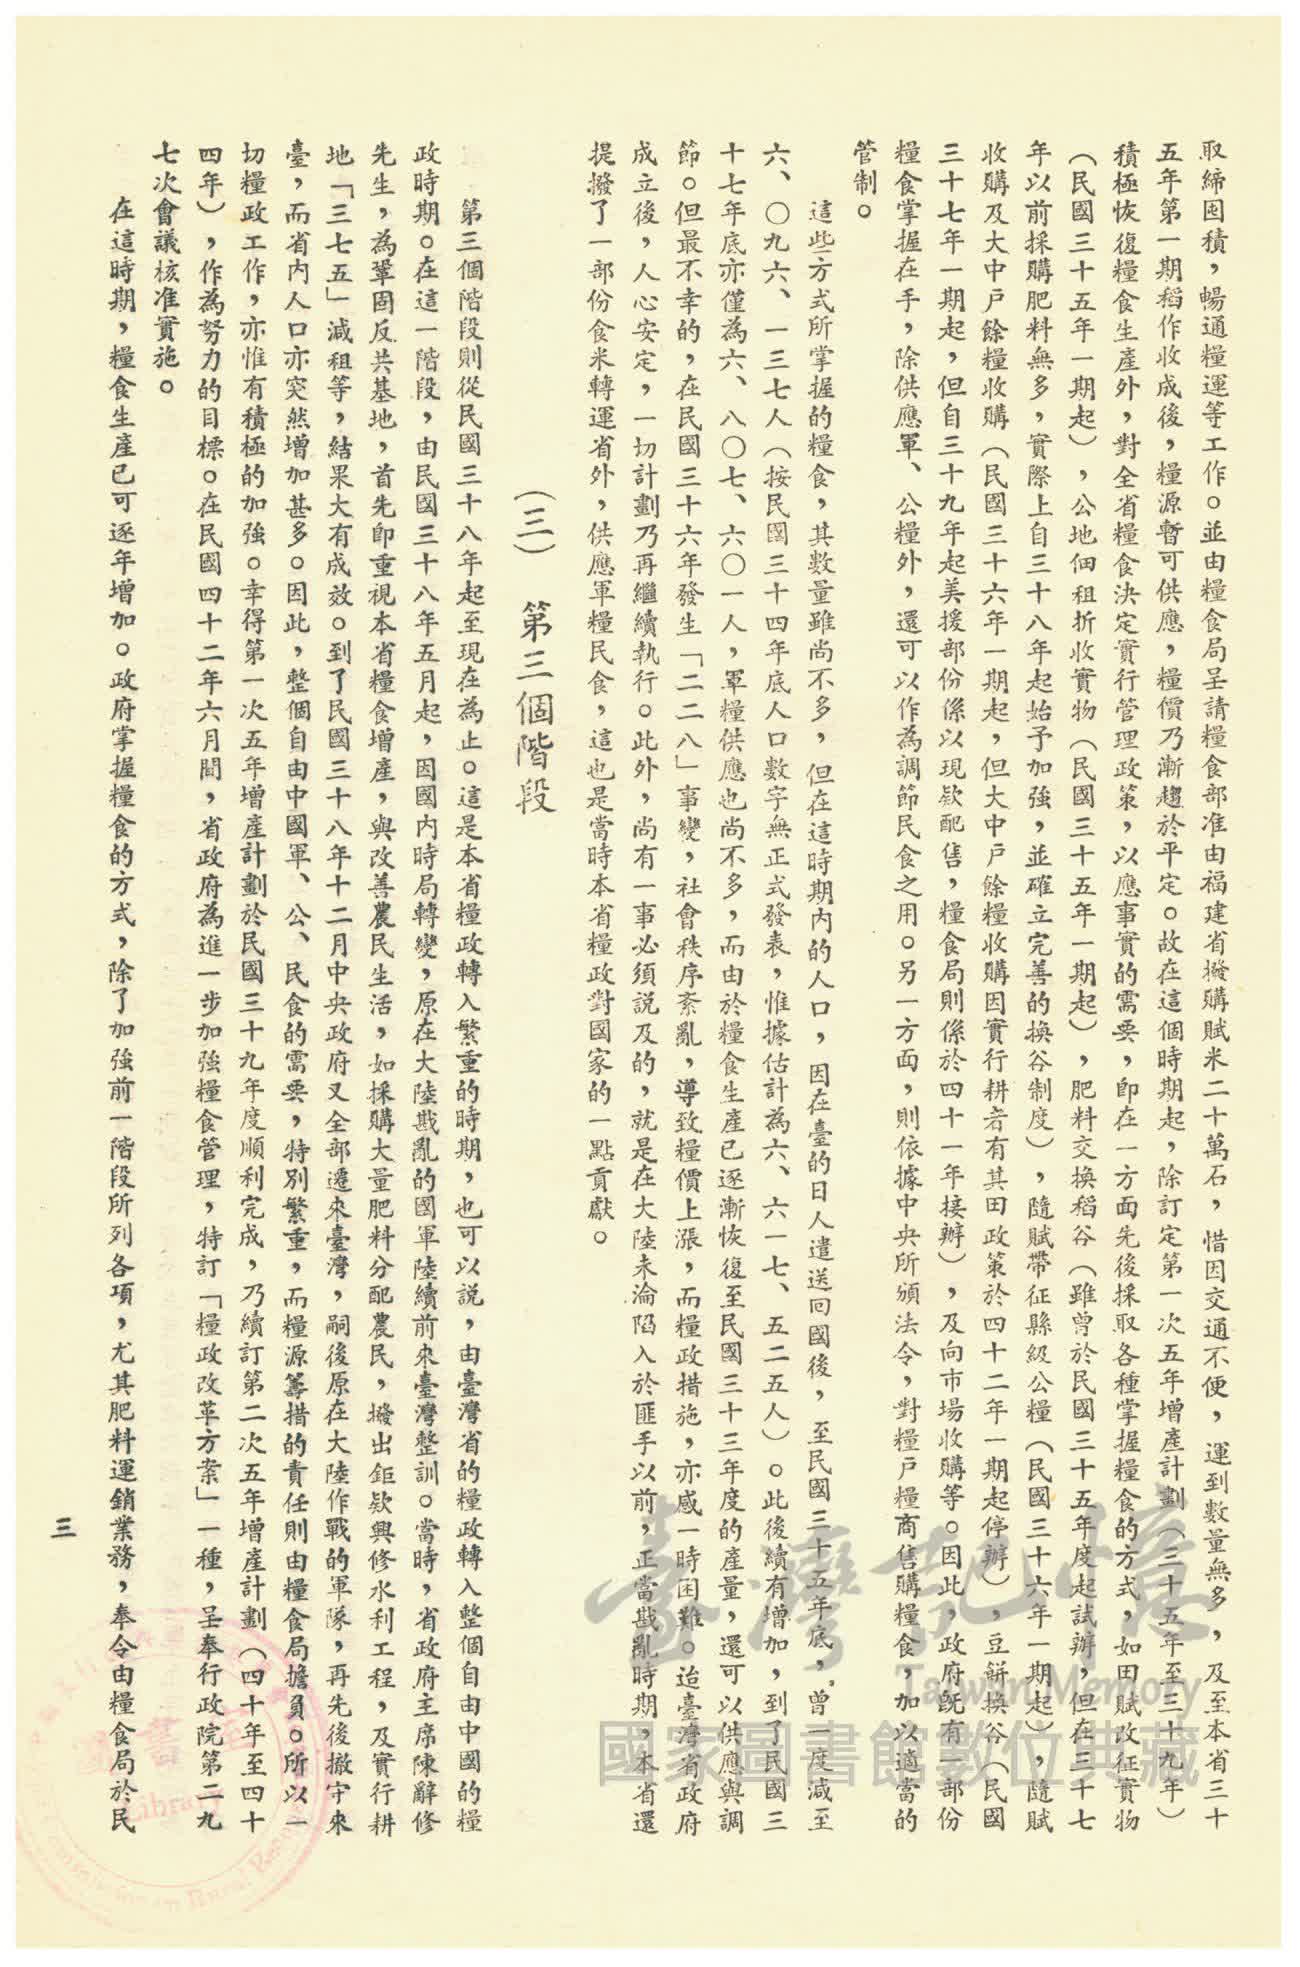 取締囤積，暢通糧運等工作。並由糧食局呈請糧食部准由福建省撥購賦米二十萬石，惜因交通不便，運到數量無多，及至本省三十
五年第一期稻作收成後，糧源暫可供應，糧價乃漸趨於平定。故在這個時期起，除訂定第一次五年增產計劃（三十五年至三十九年）
積極恢復糧食生產外，對全省糧食決定實行管理政策，以應事實的需要，即在一方面先後採取各種掌握糧食的方式，如田賦改征實物
（民國三十五年一期起），公地佃租折收實物（民國三十五年一期起），肥料交換稻谷（雖曾於民國三十五年度起試辦，但在三十七
年以前採購肥料無多，實際上自三十八年起始予加強，並確立完善的換谷制度），隨賦帶征縣級公糧（民國三十六年一期起），隨賦
收購及大中戶餘糧收購（民國三十六年一期起，但大中戶餘糧收購因實行耕者有其田政策於四十二年一期起停辦），豆餅換谷（民國
三十七年一期起，但自三十九年起美援部份係以現欵配售，糧食局則係於四十一年接辦），及向市場收購等。因此，政府既有一部份
糧食掌握在手，除供應軍、公糧外，還可以作為調節民食之用。另一方面，則依據中央所頒法令，對糧戶糧商售購糧食，加以適當的
管制。
這些方式所掌握的糧食，其數量雖尚不多，但在這時期內的人口，因在臺的日人遣送回國後，至民國三十五年底，曾一度減至
六、〇九六、一三七人（按民國三十四年底人口數字無正式發表，惟據估計為六、六一七、五二五人）。此後續有增加，到了民國三
十七年底亦僅為六、八〇七、六〇一人，軍糧供應也尚不多，而由於糧食生產已逐漸恢復至民國三十三年度的產量，還可以供應與調
節。但最不幸的，在民國三十六年發生「二二八」事變，社會秩序紊亂，導致糧價上漲，而糧政措施，亦感一時困難。迨臺灣省政府
成立後，人心安定，一切計劃乃再繼續執行。此外，尚有一事必須說及的，就是在大陸未淪陷入於匪手以前，正當戡亂時期，本省還
提撥了一部份食米轉運省外，供應軍糧民食，這也是當時本省糧政對國家的一點貢獻。
（三）　第三個階段
第三個階段則從民國三十八年起至現在為止。這是本省糧政轉入繁重的時期，也可以說，由臺灣省的糧政轉入整個自由中國的糧
政時期。在這一階段，由民國三十八年五月起，因國內時局轉變，原在大陸戡亂的國軍陸續前來臺灣整訓。當時，省政府主席陳辭修
先生，為鞏固反共基地，首先即重視本省糧食增產，與改善農民生活，如採購大量肥料分配農民，撥出鉅欵興修水利工程，及實行耕
地「三七五」減租等，結果大有成效。到了民國三十八年十二月中央政府又全部遷來臺灣，嗣後原在大陸作戰的軍隊，再先後撤守來
臺，而省內人口亦突然增加甚多。因此，整個自由中國軍、公、民食的需要，特別繁重，而糧源籌措的責任則由糧食局擔負。所以一
切糧政工作，亦惟有積極的加強。幸得第一次五年增產計劃於民國三十九年度順利完成，乃續訂第二次五年增產計劃（四十年至四十
四年），作為努力的目標。在民國四十二年六月間，省政府為進一步加強糧食管理，特訂「糧政改革方案」一種，呈奉行政院第二九
七次會議核准實施。
在這時期，糧食生產已可逐年增加。政府掌握糧食的方式，除了加強前一階段所列各項，尤其肥料運銷業務，奉令由糧食局於民
三
臺灣記憶
Taiwan Memory
國家圖書館數位典藏
圖書室
Library